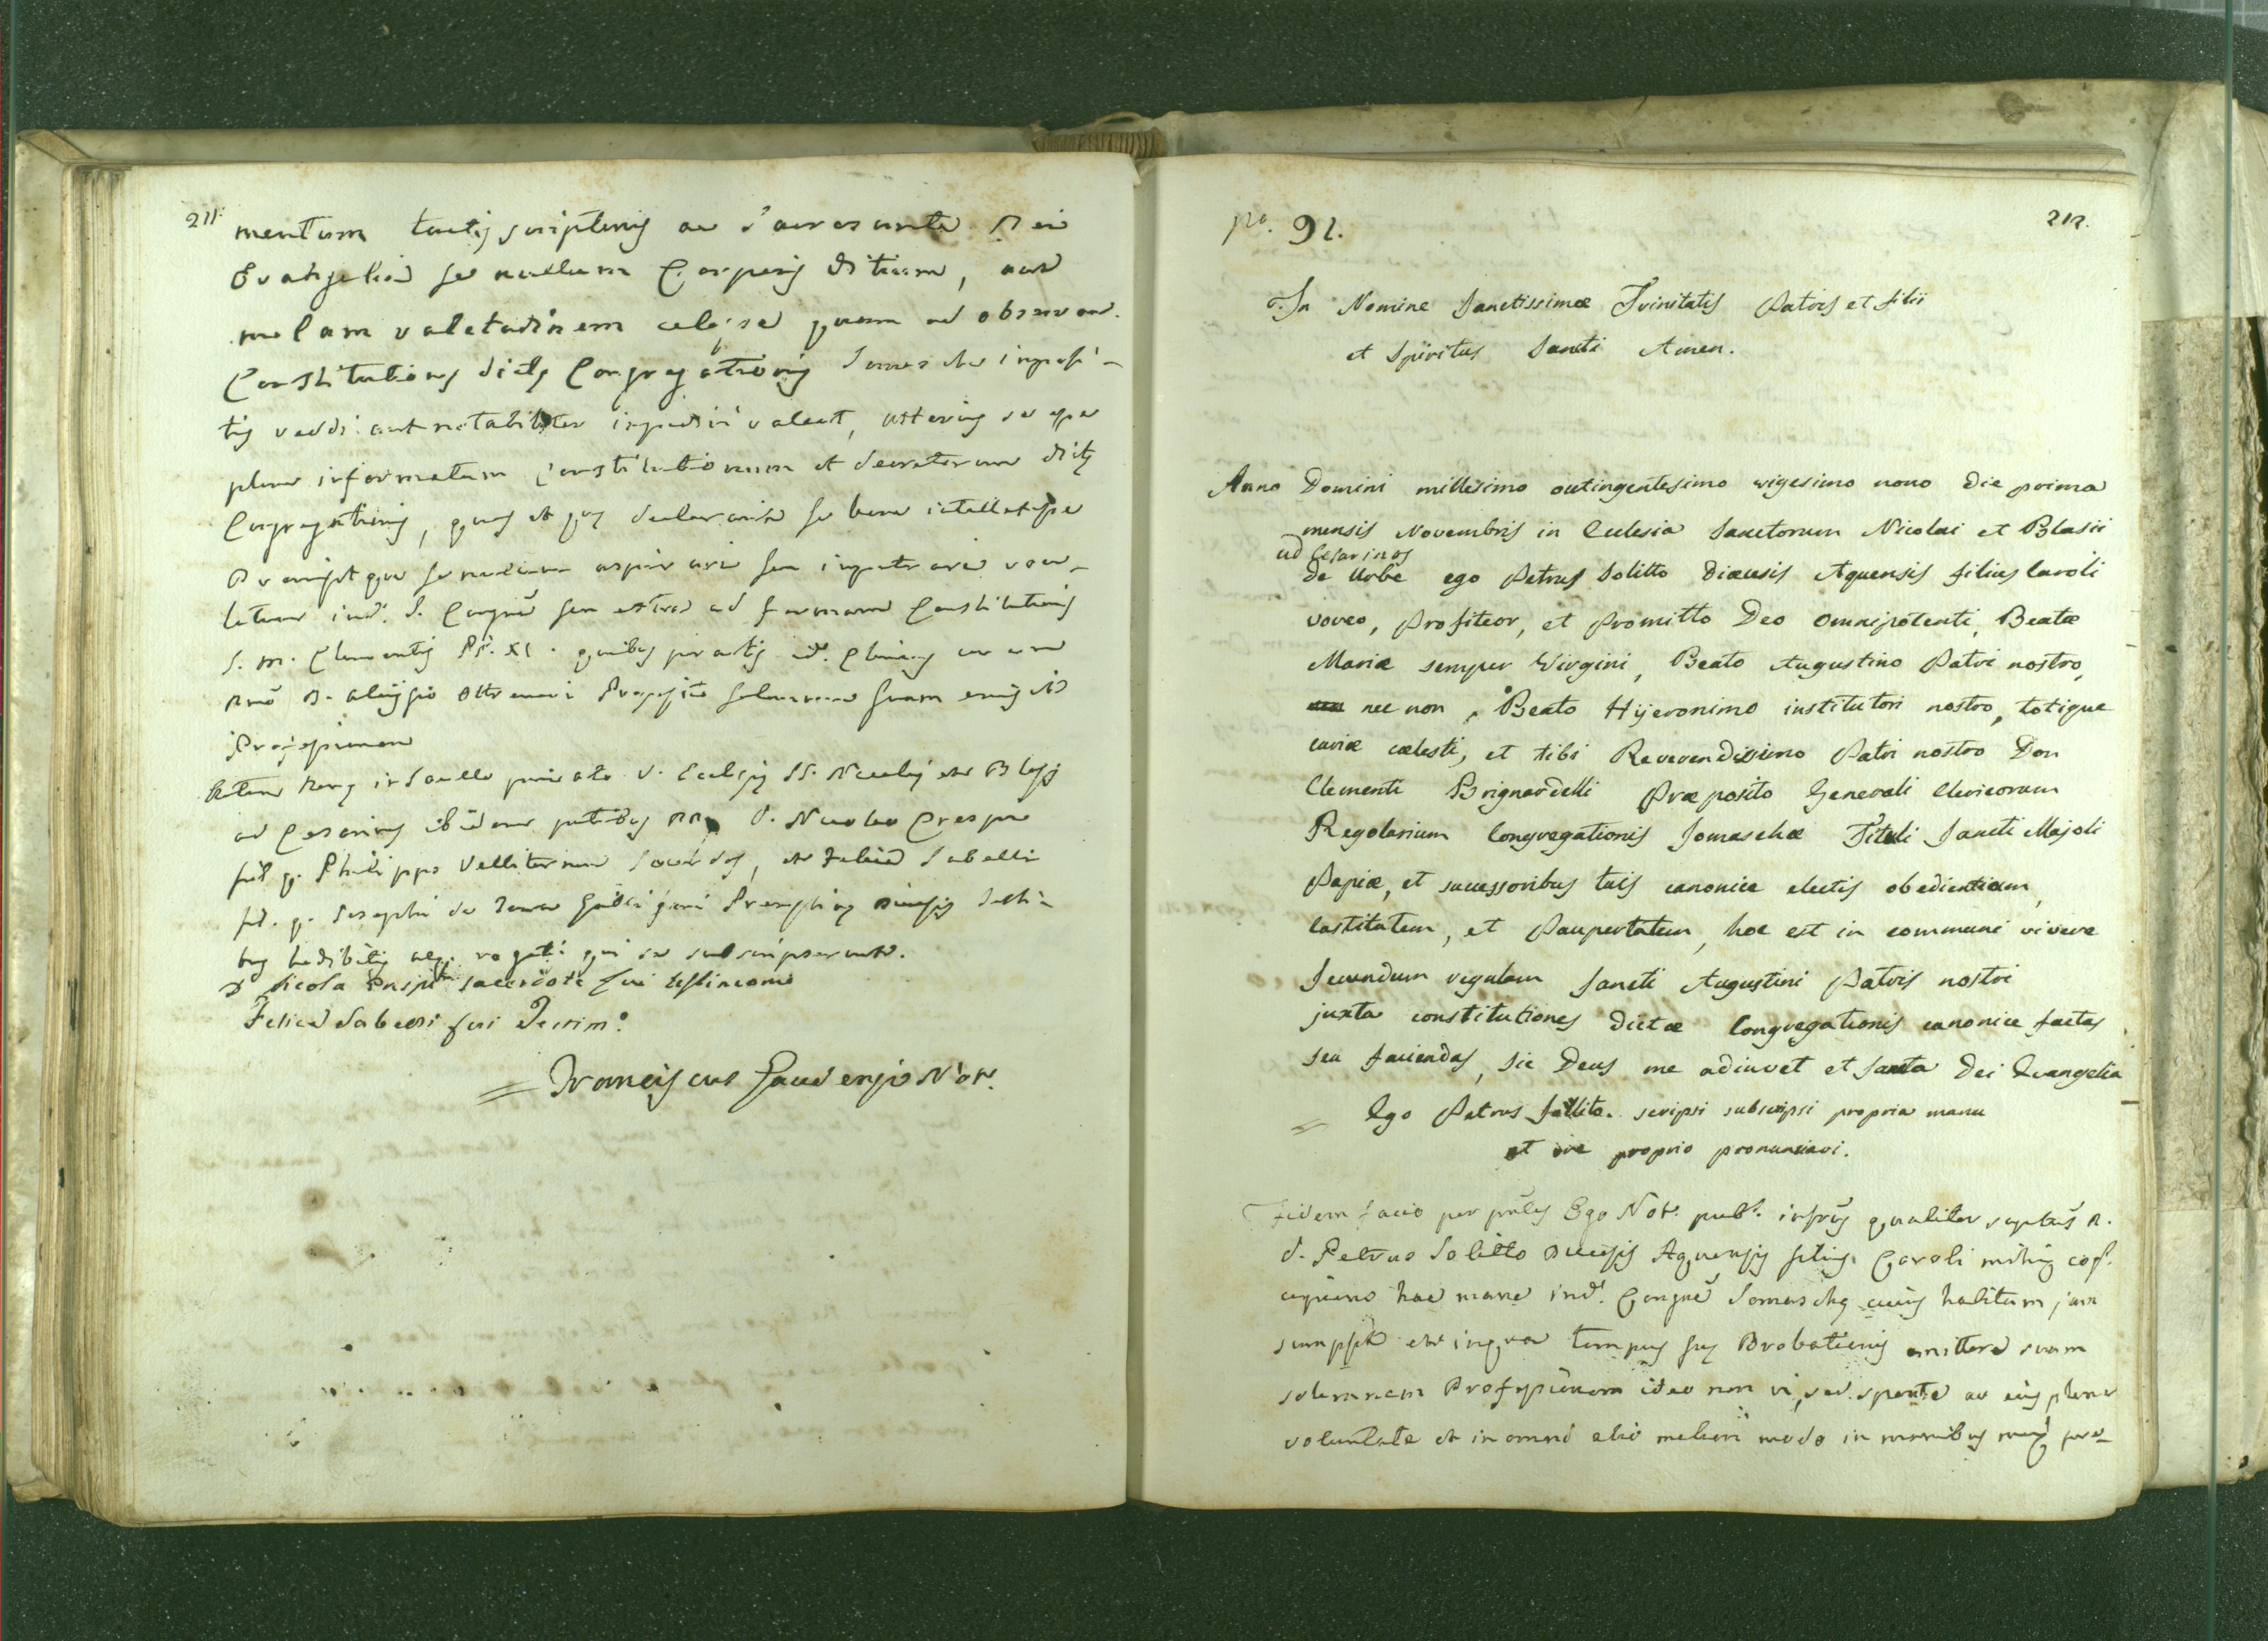 211.
mentum tactis scripturis ac sacrosancta Dei
Evangelia se nullum Corporis Vitium, aut
malam valetudinem celasse quam ad observan.
Constitutiones dictę Congregationis Somaschę imposi-
tis reddi aut notabiliter impediri valeat, ulterius se esse
plene informatum Constitutionum et decretorum dictę
Congregationis, quas et quę declaravit se bene intellexisse
Promisitque se nullum
S. m. Clementis PP. XI. quibus peractis
Rmõ D. Aloysio Ottremari Preposito solemnem suam emisit
Professionem
Actum Romę in Sacello privato V. Ecclesię SS. Nicolaj et Blasij
ad Cesarinos ibidem pntibus RR. D. Nicolao Crespi
fil. q. Philippo Velliterno Sacerdos, et Felice Sabelli
fil. q. Josephi de Testi-
bus habitis atq. rogatis qui se subscripserunt.
D. Nicola Crispi sacerdote fui testimonio
Felice Sabelli fui Testim.º
= Franciscus Gaudenzi Not.
212.
pº. 91.
In Nomine Sanctissimæ Trinitatis Patris et filii
et Spiritus Sancti Amen.
Anno Domini millesimo octingentesimo vigesimo nono die prima
mensis Novembris in Eclesia Sanctorum Nicolai et Blasii
ad Cesarinos
de Urbe ego Petrus Solitto Diœcesis Aquensis filius Caroli
voveo, Profiteor, et Promitto Deo omnipotenti, Beatæ
Mariæ semper Virgini, Beato Augustino Patri nostro,
nec non Beato Hijeronimo institutori nostro, totique
curiæ cœlesti, et tibi Reverendissimo Patri nostro Don
Clementi Brignardelli Præposito Generali Clericorum
Regolarium Congregationis Somaschæ Tituli Sancti Majoli
Papiæ, et successoribus tuis canonice electis obedientiam,
Castitatem, et Paupertatem, hoc est in communi vivere
Secundum regulam Sancti Augustini Patris nostri
juxta constitutiones dictæ Congregationis canonice factas
seu faciendas, sic Deus me adiuvet et Sancta Dei Evangelia
= Ego Petrus Solitto scripsi subscripsi propria manu
et ore proprio pronunciavi.
Fidem facio per pntes Ego Not. publ. infrus qualiter suptus R.
D. Petrus Solitto Diecesis Aquensis filius Caroli mihi cog.
cupiens hac mane in d. Congne Somaschę cuius habitum jam
sumpsit et in quo tempus suę Probationis emittere suam
solemnem Professionem ideo non vi, sed sponte ac eius plena
voluntate et in omni alio meliori modo in manibus meis pre-